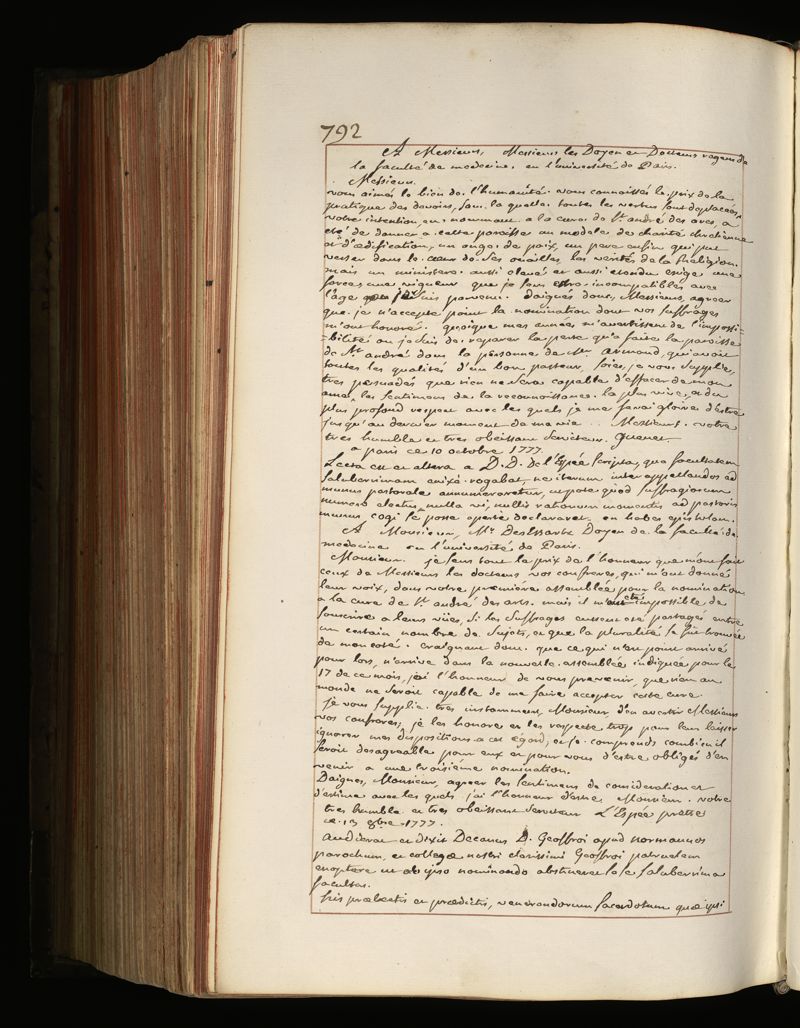 792
A Messieurs, Messieurs les Doyen et Docteurs regens de
la faculté de medecine, en l'université de Paris.
Messieurs.
vous aimés le bien de l'humanité. vous connaissés le prix de la
pratique des devoirs, sans la quelle toutes les vertus sont deplacées,
votre intention, en nommant a la cure de St. andré des arcs, a
eté de donner a cette paroisse un modele de charité chretienne
et d'œdification, un ange de paix, un pere enfin qui put
verser dans le cœur de ses ouailles les verités de la Religion.
mais un ministere aussi elevé et aussi etendu exige une
force, une vigueur que je sens etre incompatibles avec
l'age je suis parvenu. Daignés donc, Messieurs, agreer
que je n'accepte point la nomination dont vos suffrages
m'ont honoré. quoique mes années m'avertissent de l'impossi-
=bilité ou je suis de reparer la perte qu'a faite la paroisse
de St. andré dans la personne de Mr armand, qui avoit
toutes les qualités d'un bon pasteur, soiés, je vous supplie,
tres persuadés que rien ne sera capable d'effacer de mon
ame les sentimens de la reconnoissance la plus vive, et du
plus profond respect avec les quels je me ferai gloire d'estre
jusqu'au dernier moment de ma vie .. Messieurs. votre
tres humble et tres obeissant serviteur. Guenet.
a paris ce 10 octobre 1777.
Lecta est et altera a D. D. de l'Espée scripta, qua facultatem
saluberrimam enixè rogabat, ne iterum inter appellandos ad
munus pastorale annumeraretur, utpote quod suffragiorum
numero electus, nulla vi, nullis rationum momentis ad pastoris
munus cogi se posse aperte declararet. en habes epistolam.
A Monsieur, Mr. Desessartz Doyen de la faculté de
medecine en l'université de Paris.
Monsieur. je sens tout le prix de l'honneur que m'ont fait
ceux de Messieurs les docteurs vos confreres, qui m'ont donné
leur voix, dans votre premiere assemblée pour la nomination
a la cure de St. andré des arts. mais il m'eut eté impossible de
souscrire a leurs vües, si les suffrages eussent eté partagés entre
un certain nombre de sujets, et que la pluralité se fut trouvée
de mon coté. craignant donc que ce qui n'est point arrivé
pour lors, n'arrive dans la nouvelle assemblée indiquée pour le
17 de ce mois, j'ai l'honneur de vous prevenir, que rien au
monde ne seroit capable de me faire accepter cette cure.
je vous supplie tres instamment, Monsieur d'en avertir Messieurs
vos confreres; je les honore et les respecte trop pour leur laisser
ignorer mes dispositions a cet égard, et je comprends combien il
seroit desagreable pour eux et pour vous d'estre obligés d'en
venir a une troisieme nomination.
Daignes, Monsieur, agreer les sentimens de consideration et
d'estime avec les quels j'ai l'honneur d'estre Monsieur. votre
tres humble et tres obeissant serviteur L'Espée prêtre
ce 13 8bre 1777.
audierat et dixit Decanus D. Geoffroi apud normannos
parochum, et collegæ nostri clarissimi Geoffroi patruelem
exoptare ut ab ipso nominando abstineret sese saluberrima
facultas.
his prælectis et prædictis, venerandorum sacerdotum quæ ipsi